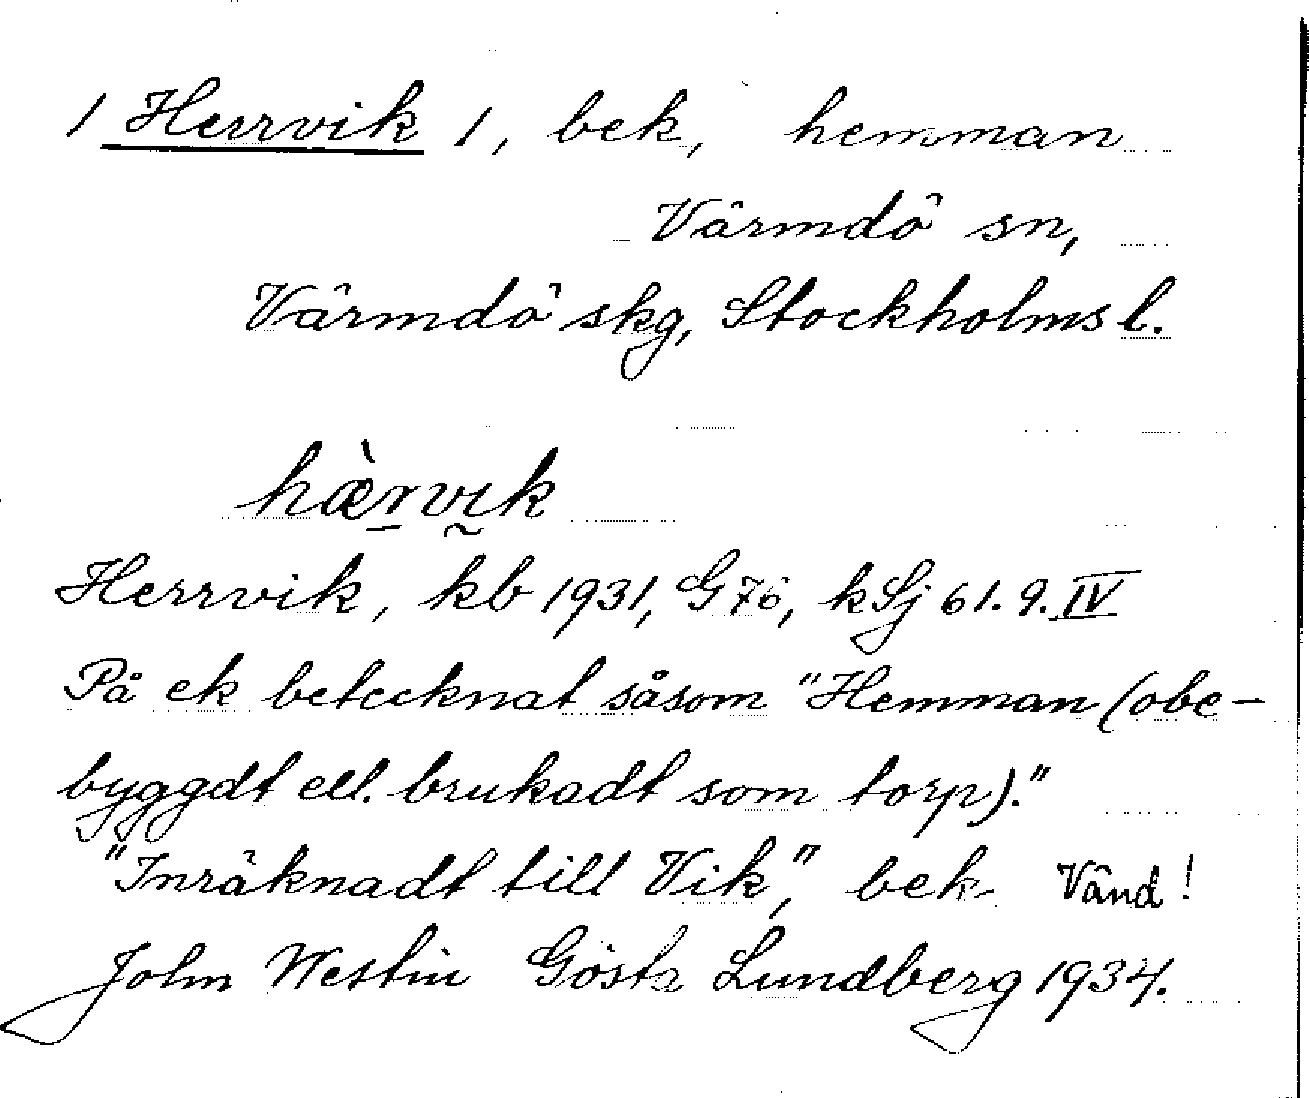 1 Herrvik 1, bek, hemman
Värmdö sn,
Värmdö skg, Stockholms l.
hæ̀rvik
Herrvik, kb 1931, G 76, k Sj 61. 9. IV
På ek betecknat såsom "Hemman (obe-
byggdt ell. brukadt som torp)."
"Inräknadt till Vik", bek. Vänd!
John Westin Gösta Lundberg 1934.